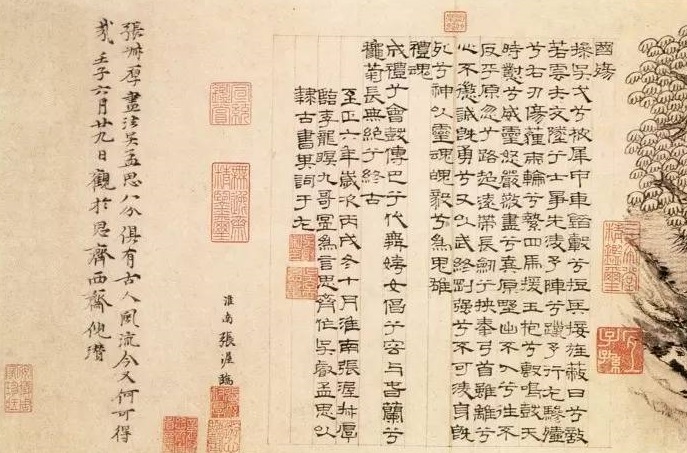 國殤
操吳戈兮被犀甲車錯轂兮短兵接旌蔽日兮敵
若雲矢交墜兮士爭先凌予陣兮躐予行左驂殪
兮右刃傷霾兩輪兮縶四馬援玉枹兮擊鳴鼓天
時懟兮威靈怒嚴殺盡兮棄原野出不入兮往不
反平原忽兮路超遠帶長劍兮挾秦弓首雖離兮
心不懲誠既勇兮又以武終剛強兮不可凌身既
死兮神以靈魂魄毅兮為鬼雄
禮魂
成禮兮會鼓傳巴兮代舞姱女倡兮容與春蘭兮
龝菊長無絕兮終古
至正六年歲次丙戌冬十月淮南張渥叔厚
臨李龍眠九哥圖為言思齊作吳叡孟思以
隸古書其詞于左
淮南張渥臨
張叔厚畫法吳孟思八分俱有古人風流今又何可得
哉壬子六月廿九日觀於思齊西齋倪瓚